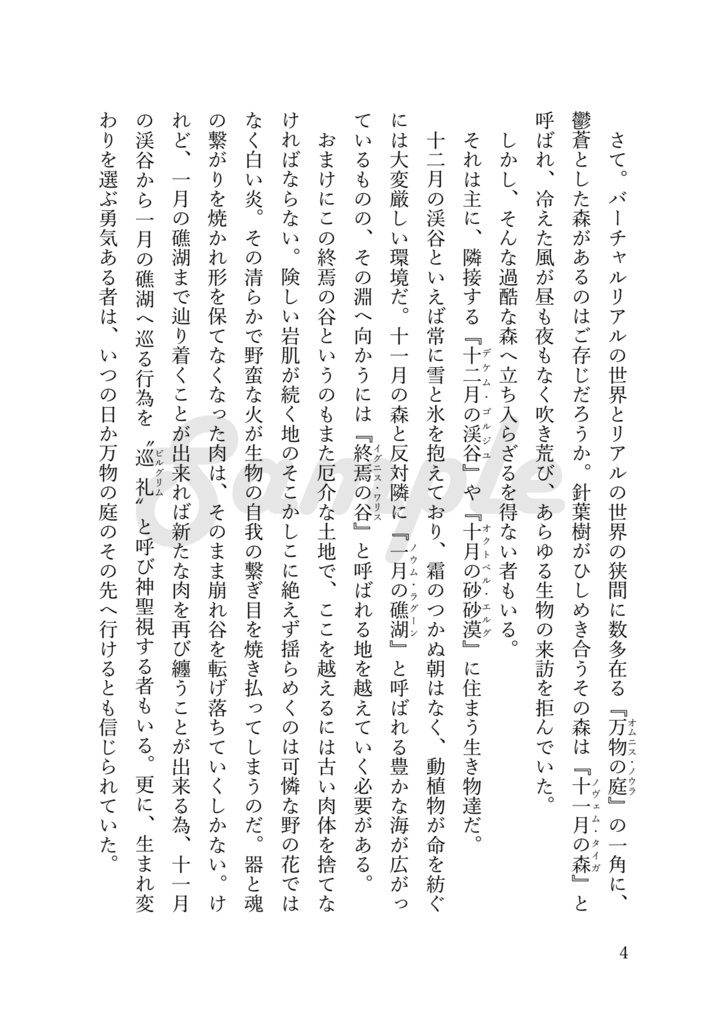 さて。バーチャルリアルの世界とリアルの世界の狭間に数多在る『万物の庭』の一角に、
オムニス・ノウラ
鬱蒼とした森があるのはご存じだろうか。針葉樹がひしめき合うその森は『十一月の森』と
ノヴェム・タイガ
呼ばれ、冷えた風が昼も夜もなく吹き荒び、あらゆる生物の来訪を拒んでいた。
しかし、そんな過酷な森へ立ち入らざるを得ない者もいる。
それは主に、隣接する『十二月の渓谷』や『十月の砂砂漠』に住まう生き物達だ。
デケム・ゴルジユ
オクトベル・エルグ
十二月の渓谷といえば常に雪と氷を抱えており、霜のつかぬ朝はなく、動植物が命を紡ぐ
には大変厳しい環境だ。十一月の森と反対隣に『一月の礁湖』と呼ばれる豊かな海が広がっ
ノウム・ラグーン
ているものの、その淵へ向かうには『終焉の谷』と呼ばれる地を越えていく必要がある。
イグニス・ワリス
おまけにこの終焉の谷というのもまた厄介な土地で、ここを越えるには古い肉体を捨てな
ければならない。険しい岩肌が続く地のそこかしこに絶えず揺らめくのは可憐な野の花では
なく白い炎。その清らかで野蛮な火が生物の自我の繋ぎ目を焼き払ってしまうのだ。器と魂
の繋がりを焼かれ形を保てなくなった肉は、そのまま崩れ谷を転げ落ちていくしかない。け
れど、一月の礁湖まで辿り着くことが出来れば新たな肉を再び纏うことが出来る為、十一月
の渓谷から一月の礁湖へ巡る行為を〝巡礼〟と呼び神聖視する者もいる。更に、生まれ変
ピルグリム
わりを選ぶ勇気ある者は、いつの日か万物の庭のその先へ行けるとも信じられていた。
4
Sample